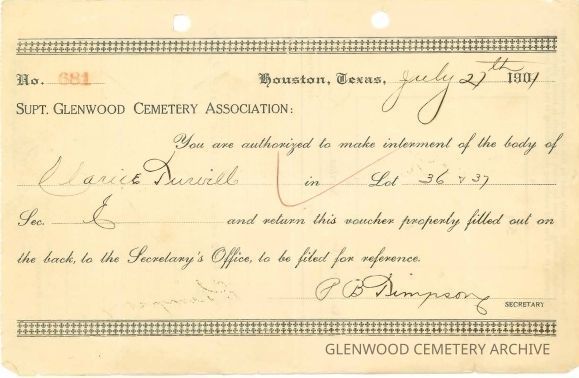 No. 681 Houston, Texas, July 27th 1901
SUPT. GLENWOOD CEMETERY ASSOCIATION:
You are authorized to make interment of the body of
Clarice in Lot 36 & 37
Sec. E and return this voucher properly filled out on
the back, to the Secretary's Office, to be filed for reference.
P B Timpson
SECRETARY
GLENWOOD CEMETERY ARCHIVE